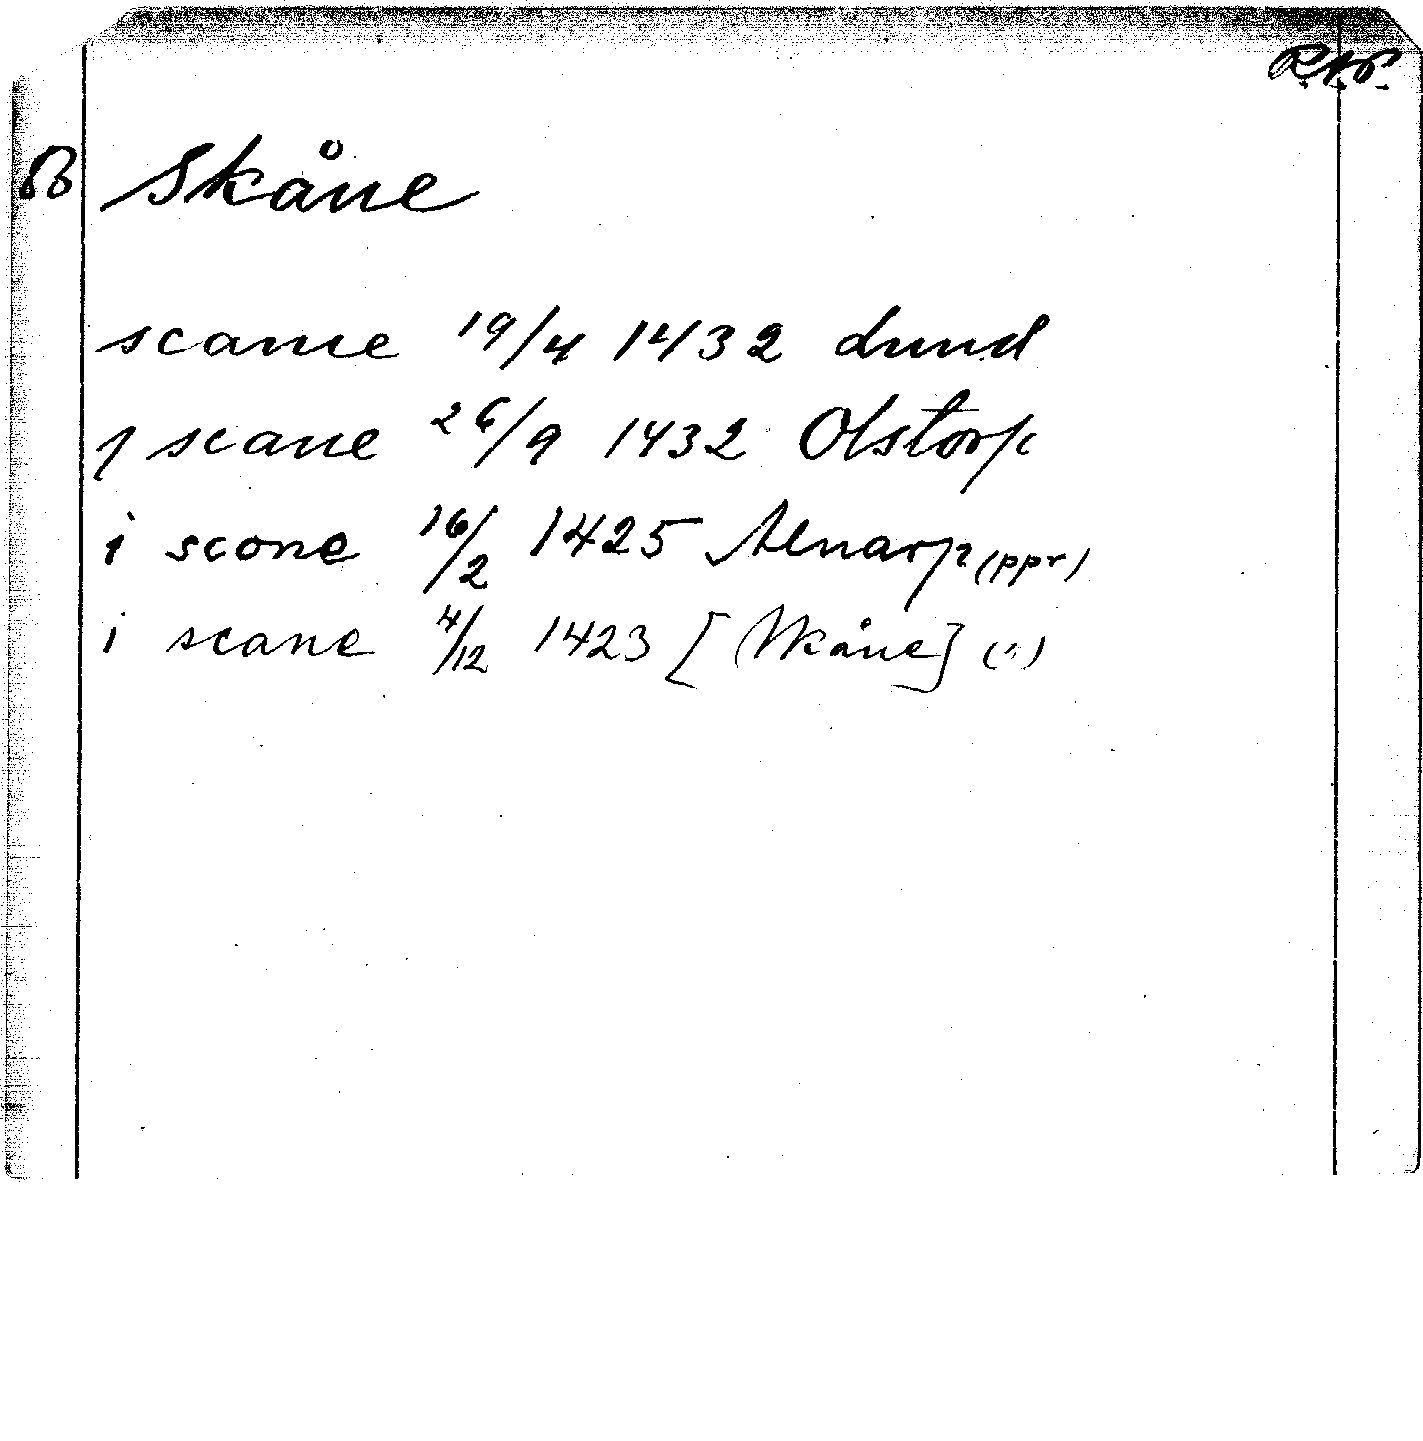 RAP.
Skåne
scanie 19/4 1432 Lund
j scane 26/9 1432 Olstorp
i scone 16/2 1425 Alnarp (ppr)
i scane 4/12 1423 [Skåne] (")